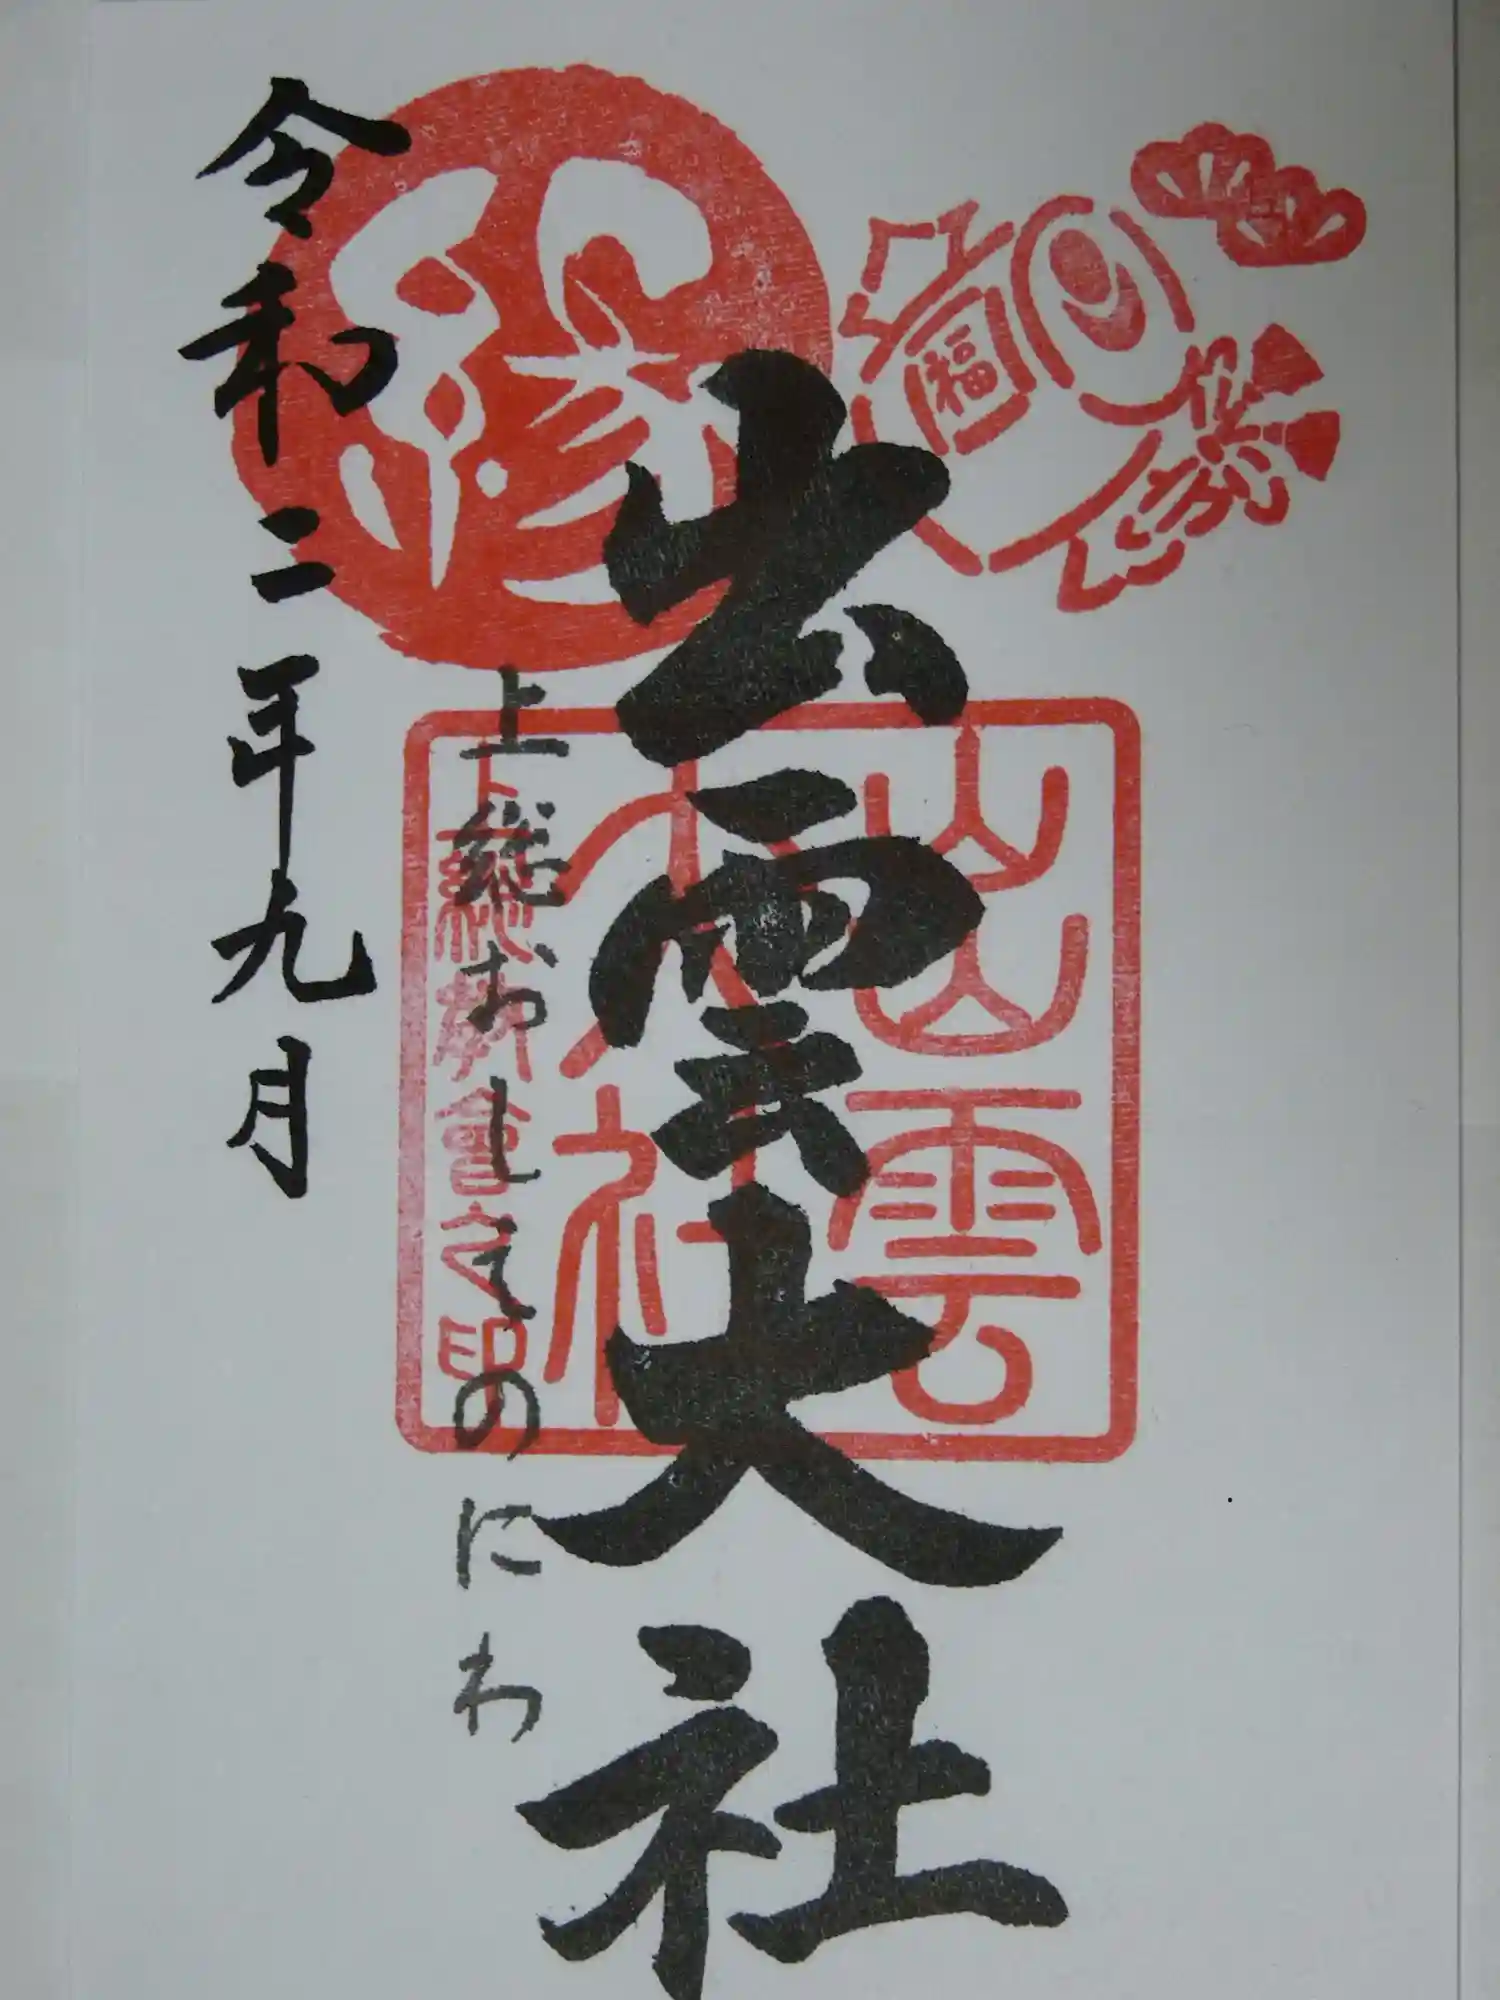 福
縁
出雲大社
出雲
大社
上総教會之印
上総おしきのにわ
令和二年九月